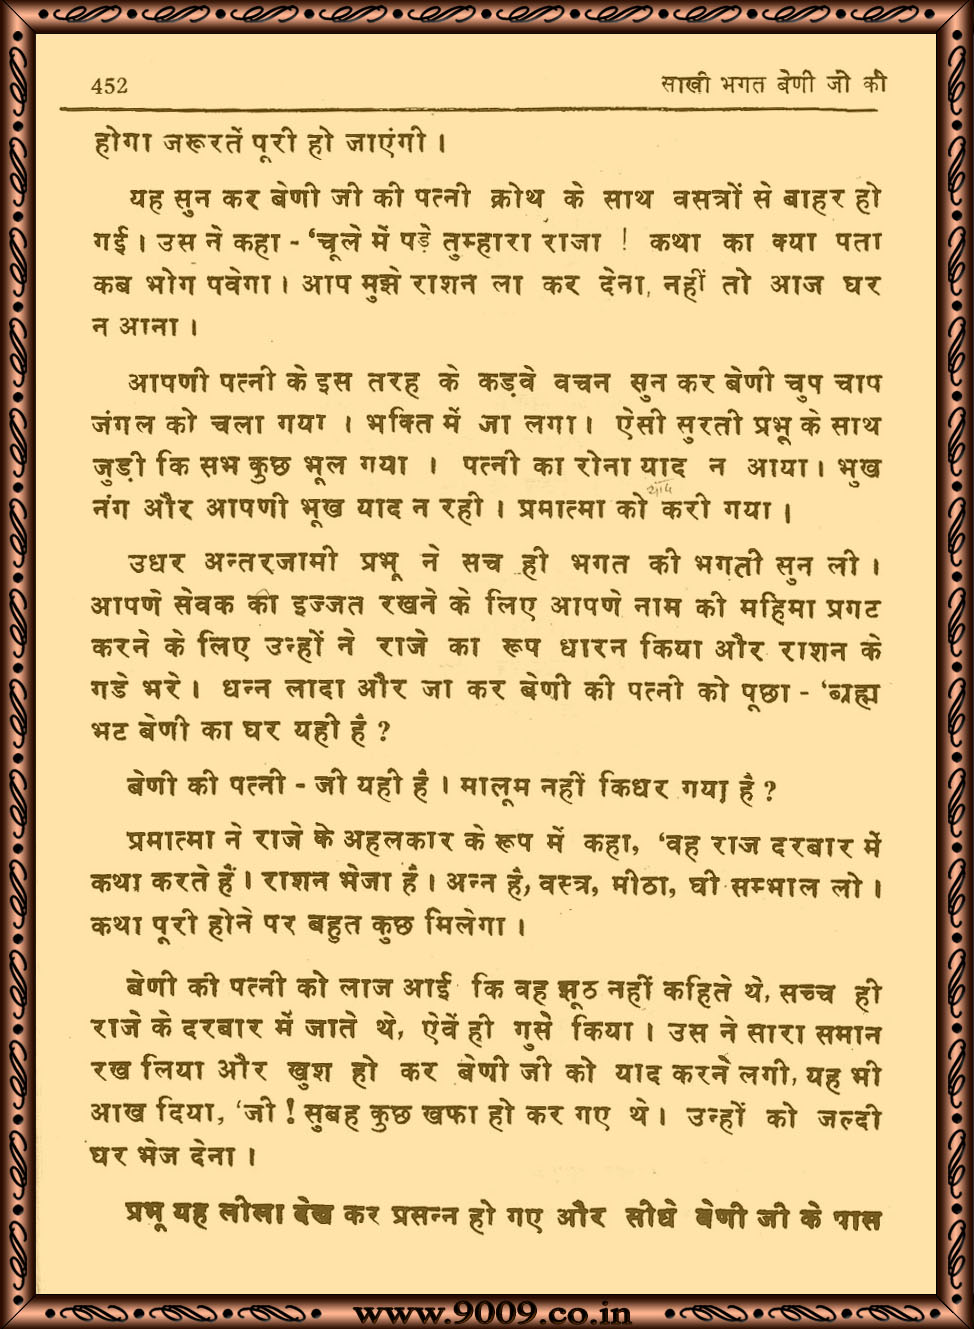 452 साखी भगत बेणी जी की
होगा जरूरतें पूरी हो जाएंगी ।
यह सुन कर बेणी जी की पत्नी क्रोथ के साथ वसत्रों से बाहर हो
गई । उस ने कहा - ‘चूले में पड़े तुम्हारा राजा ! कथा का क्या पता
कब भोग पवेगा । आप मुझे राशन ला कर देना, नहीं तो आज घर
न आना ।
आपणी पत्नी के इस तरह के कड़वे वचन सुन कर बेणी चुप चाप
जंगल को चला गया । भक्ति में जा लगा । ऐसी सुरती प्रभू के साथ
जुड़ी कि सभ कुछ भूल गया । पत्नी का रोना याद न आया । भुख
नंग और आपणी भूख याद न रही । प्रमात्मा को करी गया ।
याद
उधर अन्तरजामी प्रभू ने सच ही भगत की भगती सुन ली ।
आपणे सेवक की इज्जत रखने के लिए आपणे नाम की महिमा प्रगट
करने के लिए उन्हों ने राजे का रूप धारन किया और राशन के
गडे भरे । धन्न लादा और जा कर बेणी की पत्नी को पूछा - ‘ब्रह्म
भट बेणी का घर यही है ?
बेणी की पत्नी - जी यही है । मालूम नहीं किधर गया है ?
प्रमात्मा ने राजे के अहलकार के रूप में कहा, ‘वह राज दरबार में
कथा करते हैं । राशन भेजा है । अन्न है, वस्त्र, मीठा, घी सम्भाल लो ।
कथा पूरी होने पर बहुत कुछ मिलेगा ।
बेणी की पत्नी को लाज आई कि वह झूठ नहीं कहिते थे, सच्च ही
राजे के दरबार में जाते थे, ऐवें ही गुसे किया । उस ने सारा समान
रख लिया और खुश हो कर बेणी जी को याद करने लगी, यह भी
आख दिया, ‘जी ! सुबह कुछ खफा हो कर गए थे । उन्हों को जल्दी
घर भेज देना ।
प्रभू यह लीला देख कर प्रसन्न हो गए और सीधे बेणी जी के पास
www.9009.co.in